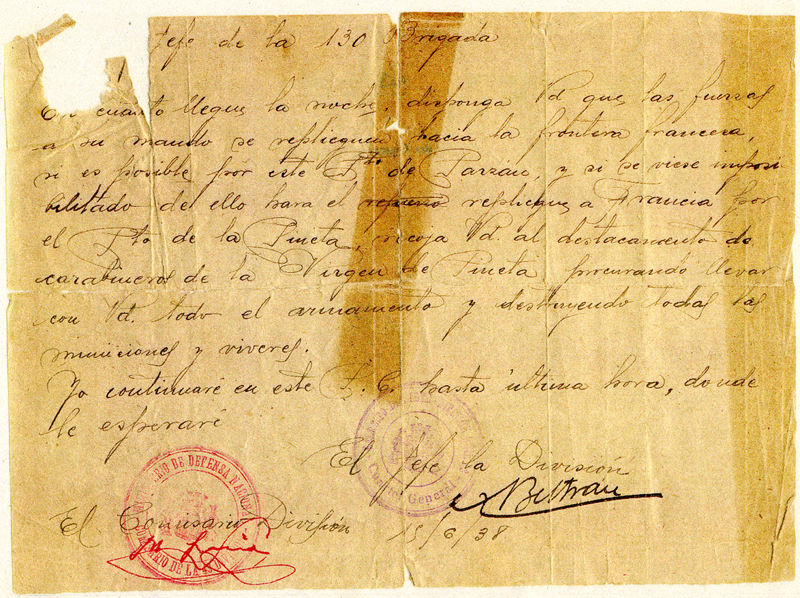 Jefe de la 130 Brigada
En cuanto llegue la noche, disponga Vd que las fuerzas
a su mando se replieguen hacia la frontera francesa,
si es posible por este Pto de Parzán, y si se viese imposi
bilitado de ello hara el repliegue a Francia por
el Pto de la Pineta, recoja Vd. al destacamento de
carabineros de la Virgen de Pineta procurando llevar
con Vd. todo el armamento y destruyendo todas las
municiones y viveres.
Yo continuaré en este P. C. hasta última hora, donde
le esperaré
El Jefe la División
Cuartel General
Beltrán
El Comisario División
15/6/38
MINISTERIO DE DEFENSA NACIONAL
COMISARIO DE LA